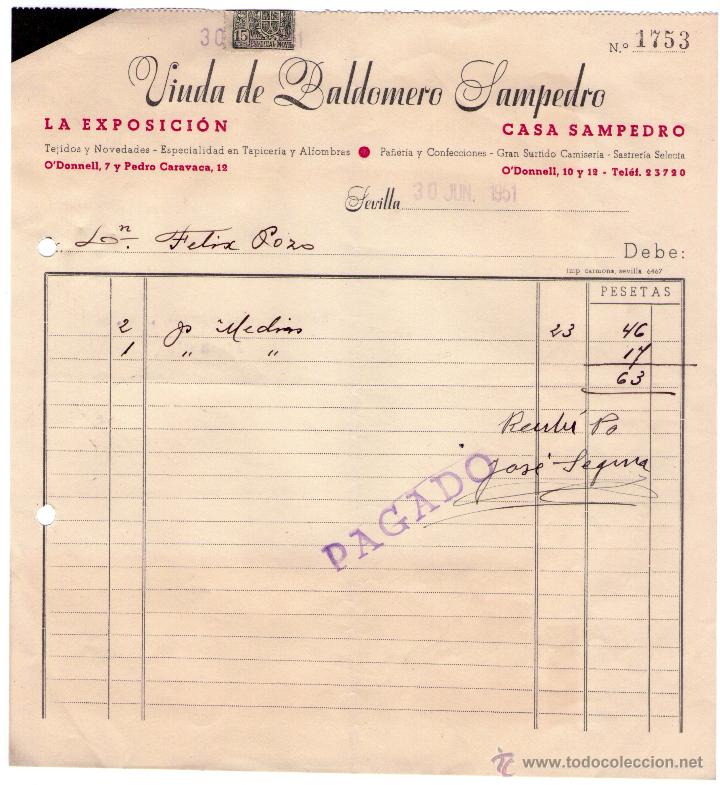 30
15
N.º 1753
Viuda de Baldomero Sampedro
LA EXPOSICIÓN
CASA SAMPEDRO
Tejidos y Novedades - Especialidad en Tapicería y Alfombras
Pañería y Confecciones - Gran Surtido Camisería - Sastrería Selecta
O'Donnell, 7 y Pedro Caravaca, 12
O'Donnell, 10 y 12 - Teléf. 23720
Sevilla 30 JUN. 1951
Dn. Felix Pozo Debe:
imp carmona, sevilla 6467
PESETAS
2 ps Medias 23 46
1 " " 17
63
Recibí Po
José Segura
PAGADO
www.todocoleccion.net